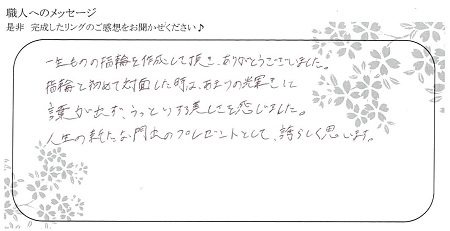 職人へのメッセージ
是非 完成したリングのご感想をお聞かせください♪
一生ものの指輪を作成して頂き、ありがとうございました。
指輪と初めて対面した時は、あまりの光輝きに
言葉が出ず、うっとりする美しさを感じました。
人生の新たな門出のプレゼントとして、誇らしく思います。